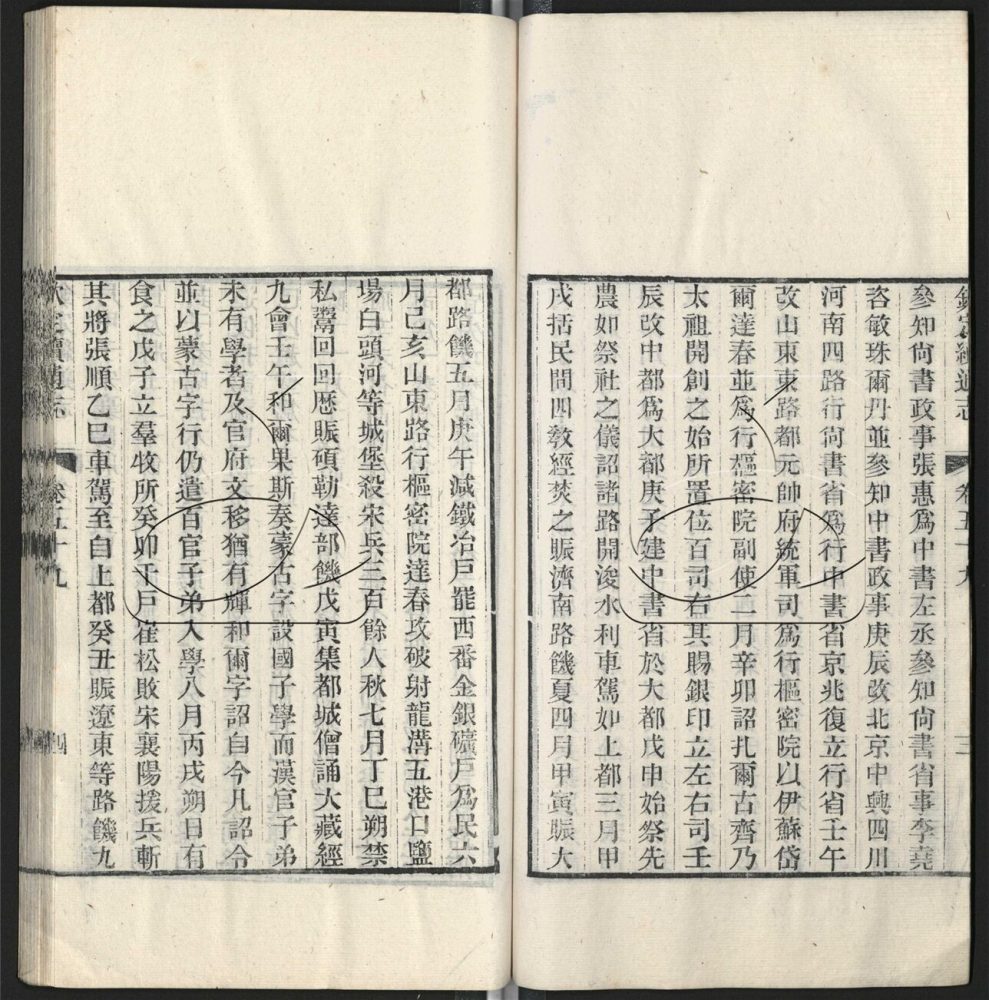 欽定續通志 卷五十九 三
參知尚書政事張惠爲中書左丞參知尚書省事李堯
咨敏珠爾丹並參知中書政事庚辰改北京中興四川
河南四路行尚書省爲行中書省京兆復立行省壬午
改山東東路都元帥府統軍司爲行樞密院以伊蘇岱
爾達春並爲行樞密院副使二月辛卯詔扎爾古齊乃
太祖開創之始所置位百司右其賜銀印立左右司壬
辰改中都爲大都庚子建中書省於大都戊申始祭先
農如祭社之儀詔諸路開浚水利車駕如上都三月甲
戌括民間四教經焚之賑濟南路饑夏四月甲寅賑大
都路饑五月庚午減鐵冶戶罷西番金銀礦戶爲民六
月己亥山東路行樞密院達春攻破射龍溝五港口鹽
場白頭河等城堡殺宋兵三百餘人秋七月丁巳朔禁
私鬻回回厯賑碩勒達部饑戊寅集都城僧誦大藏經
九會壬午和爾果斯奏蒙古字設國子學而漢官子弟
未有學者及官府文移猶有輝和爾字詔自今凡詔令
並以蒙古字行仍遣百官子弟入學八月丙戌朔日有
食之戊子立羣牧所癸卯千戶崔松敗宋襄陽援兵斬
其將張順乙巳車駕至自上都癸丑賑遼東等路饑九
欽定續通志 卷五十九 四